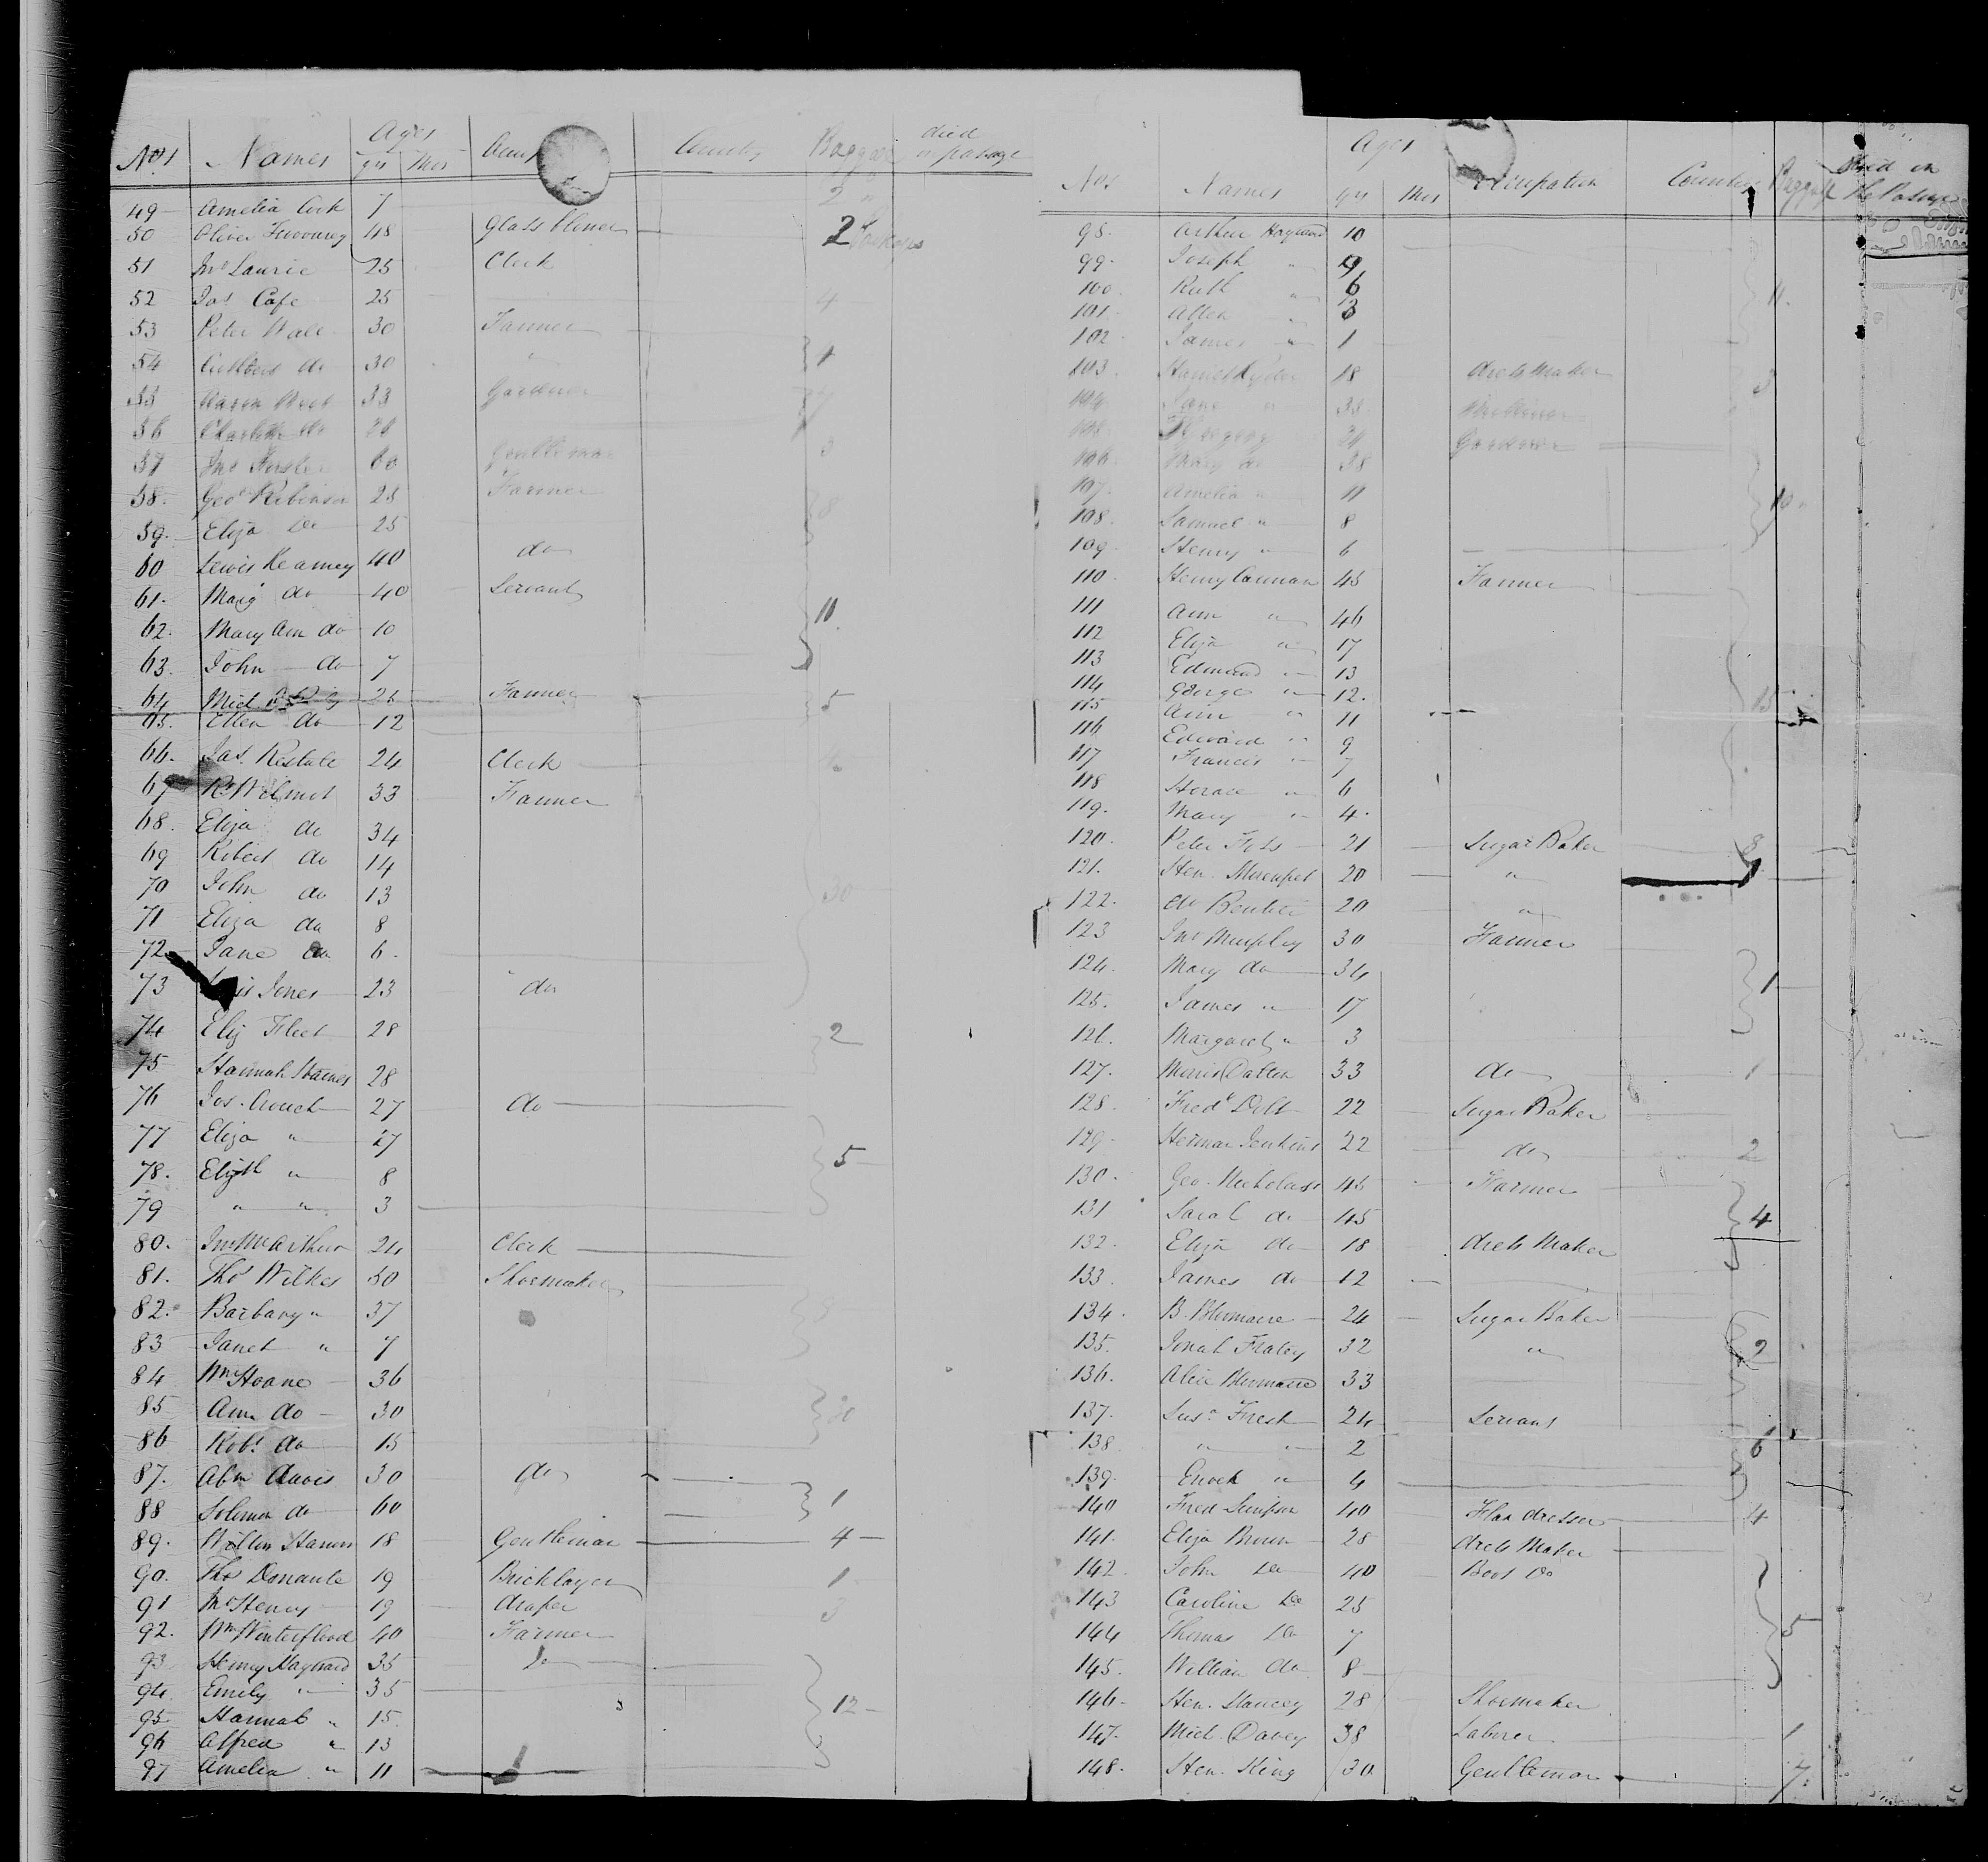 Nos Names Ages yrs Mos Country Baggage died on passage
49 Amelia Cork 7 2 "
50 Oliver 48 Glass blower 2 Packages
51 Jno Laurie 25 Clerk
52 Jas Cafe 25 4
53 Peter Wall 30 Farmer
54 do 30 " 1
55 33 Gardner
56 Charlotte do
57 Jno 60 Gentleman 3
58. Geo Robinson 28 Farmer 8
59. Eliza Do 25
60 Lewis Kearney 40 do
61. Marg do 40 Servant 11
62. Mary Ann do 10
63. John do 7
64 Mich 26 Farmer 5
65. Ellen do 12
66. Jas. Restale 24 Clerk
67 R Wilmot 33 Farmer
68. Eliza do 34
69 Robert do 14
70 John do 13 30
71 Eliza do 8
72 Jane do 6.
73 Jones 23 do
74 Eliz Fleet 28 2
75 Hannah Staines 28
76 Jos. Crouch 27 do
77 Eliza " 27
78. Elizth " 8 5
79 " " 3
80. Jno McArthur 24 Clerk
81. Thos Wilkes 50 Shoemaker
82. Barbary " 37
83 Janet " 7
84 Wm Hoane 36
85 Ann do 30 30
86 Robt do 15
87. Abm Davis 30 do
88 Solomon do 60 1
89. Hanson 18 Gentleman 4
90. Thos Donaule 19 Bricklayer 1
91 Jno Henry 19 draper 3
92. Wm Winterflood 40 Farmer
93 Henry Haywood 35 Do
94 Emily " 35
95 Hannah " 15. 12
96 Alfred " 13
97 Amelia " 11
Nos Names Ages yrs Mos Occupation Country Baggage died on the Passage
98. Arthur Haywood 10
99. Joseph " 9
100. Ruth " 6 11.
101. Allen " 3
102. James " 1
103. Harriet Ryder 18 dress Maker 3
104. Jane " 33 Milliner
105. Gardner
106. Mary do 38
107. Amelia " 11 10
108. Samuel " 8
109. Henry " 6
110. Henry Cannan 45 Farmer
111 Ann " 46
112 Eliza " 17
113 Edmund " 13
114 George " 12. 15
115 Ann " 11
116 Edward " 9
117 Francis " 7
118 Horace " 6
119. Mary " 4.
120. Peter 21 Sugar Baker 3
121. Hen. 20 "
122. do 20 "
123 Jno Murphy 30 Farmer
124. Mary do 34
125. James " 17 1
126. Margaret " 3
127. Morris Dalton 33 do 1
128. Fredk Dolt 22 Sugar Baker
129. Herman Jenkins 22 do 2
130. Geo. Nicholass 45 Farmer
131 Sarah do 45 4
132. Eliza do 18 dress Maker
133. James do 12
134. B. Blumaere 24 Sugar Baker
135. Jonah Fraley 32 " 2
136. Alice Blumaere 33
137. Susn French 24 Servant
138 " " 2 6
139. Enoch " 4
140 Fred Simpson 40 Flax dresser 4
141. Eliza Brown 28 dress Maker
142. John Do 40 Boot Do
143 Caroline Do 25
144 Thomas Do 7 5
145. William do 8
146. Hen. Stancey 28 Shoemaker
147. Mich. Davey 38 Laborer 1
148. Hen. King 30 Gentleman 7.